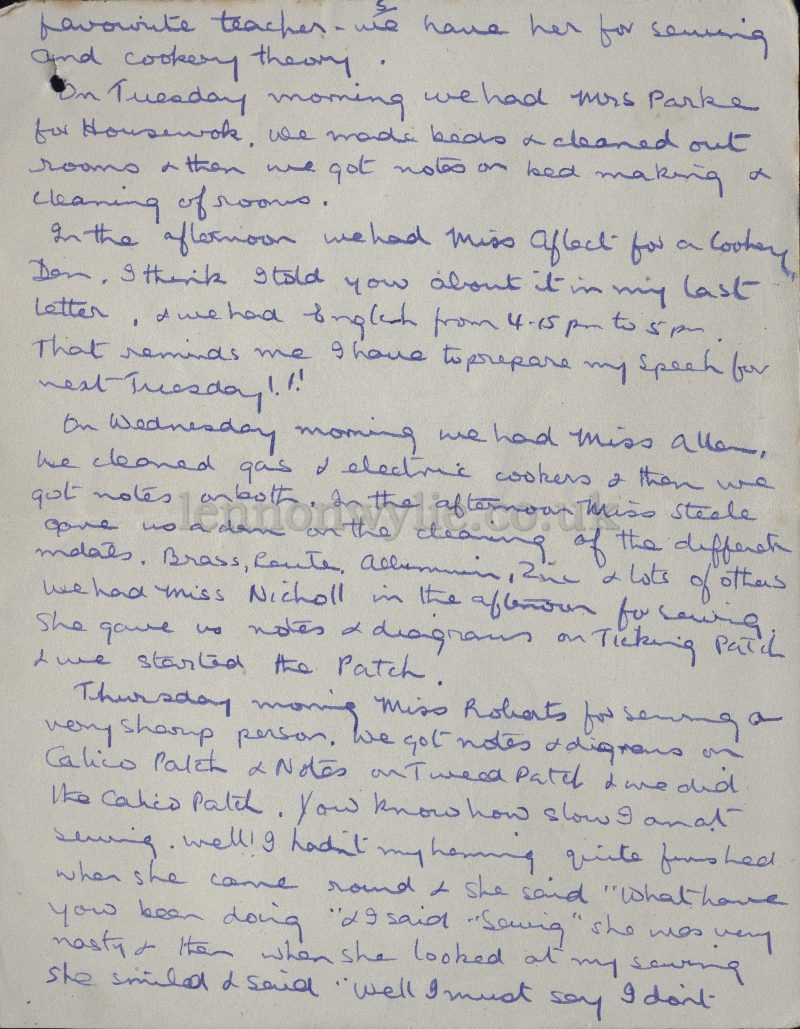 favourite teacher - we have her for sewing
and cookery theory.
On Tuesday morning we had Mrs Parke
for Housewok. We made beds & cleaned out
rooms & then we got notes on bed making &
cleaning of rooms.
In the afternoon we had Miss Aflect for a Cookery
Dem. I think I told you about it in my last
letter, & we had English from 4-15 pm to 5 pm.
That reminds me I have to prepare my speech for
next Tuesday!!!
On Wednesday morning we had Miss Allen,
We cleaned gas & electric cookers & then we
got notes on both. In the afternoon Miss Steele
gave us a dem on the cleaning of the different
metals. Brass, Pewter, Alluminium, Zinc & lots of others
We had Miss Nicholl in the afternoon for sewing.
She gave us notes & diagrams on Ticking Patch
& we started the Patch.
Thursday morning Miss Roberts for sewing a
very sharp person. We got notes & digrams on
Calico Patch & Notes on Tweed Patch & we did
the Calico Patch. You know how slow I am at
sewing. Well! I hadn't my hemming quite finished
when she came round & she said "What have
you been doing" & I said "Sewing" she was very
nasty & then when she looked at my sewing
she smiled & said "Well I must say I don't
lennonwylie.co.uk